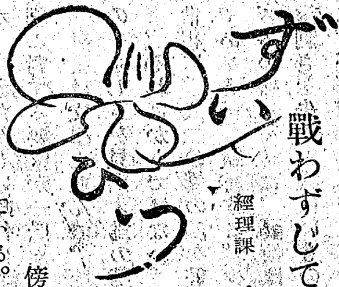 ずいひつ
戰わずして
經理課
傍
る。